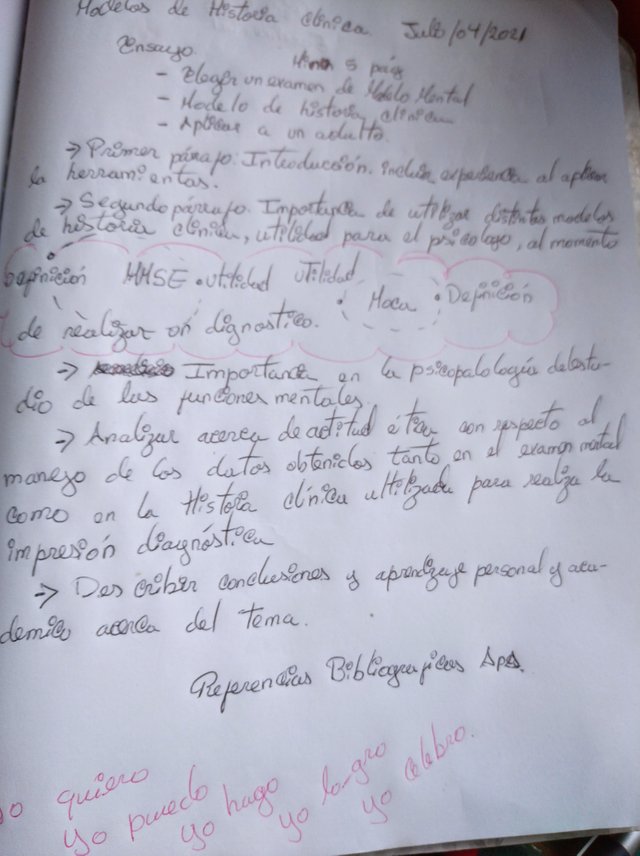 Modelos de Historia clínica. Julio/04/2021
Ensayo Min 5 pág
- Elegir un examen de Modelo Mental
- Modelo de historia clinica
- Aplicar a un adulto.
→ Primer párrafo: Introducción. incluir experiencia al aplicar
la herramientas.
→ Segundo párrafo. Importancia de utilizar distintos modelos
de historia clínica, utilidad para el psicologo, al momento
Definición MMSE • utilidad utilidad • Moca • Definición
de realizar un dignostico.
→ Importancia en la psicopalología del estu-
dio de las funciones mentales
→ Analizar acerca de actitud ética con respecto al
manejo de los datos obtenidos tanto en el examen mental
como en la Historia clínica ultilizada para realiza la
impresión diagnóstica
→ Describir conclusiones y aprendizaje personal y aca-
demico acerca del tema.
Referencias Bibliograficas Apa.
yo quiero
yo puedo
yo hago
yo logro
yo celebro.